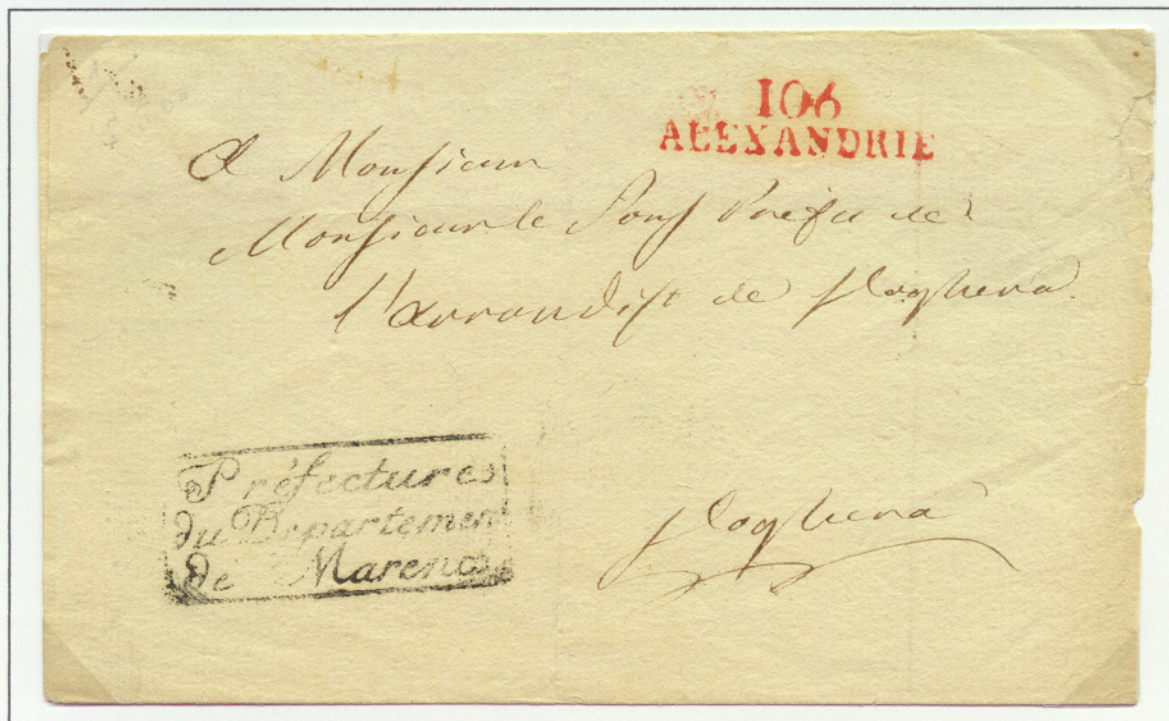 106
ALEXANDRIE
A Monsieur
Monsieur le Sous Préfet de
l'arrondist de Voghera
Préfecture
du Departement
de Marengo
Voghera